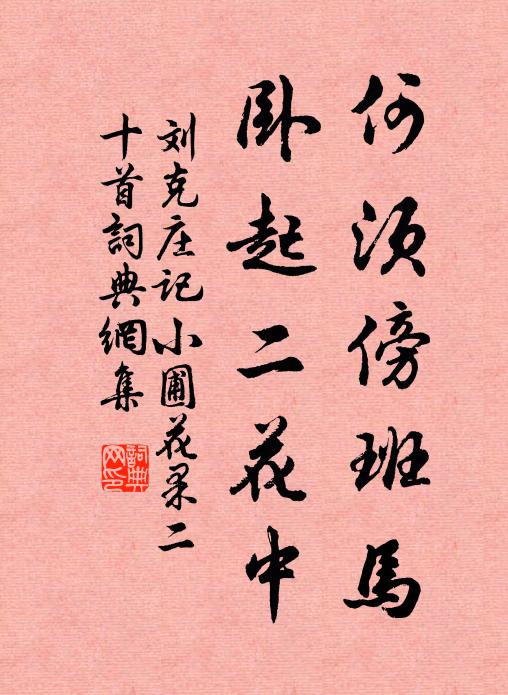 何须傍班馬
卧起二花中
刘克庄记小圃花果二
十首詞典網集
詞典网印